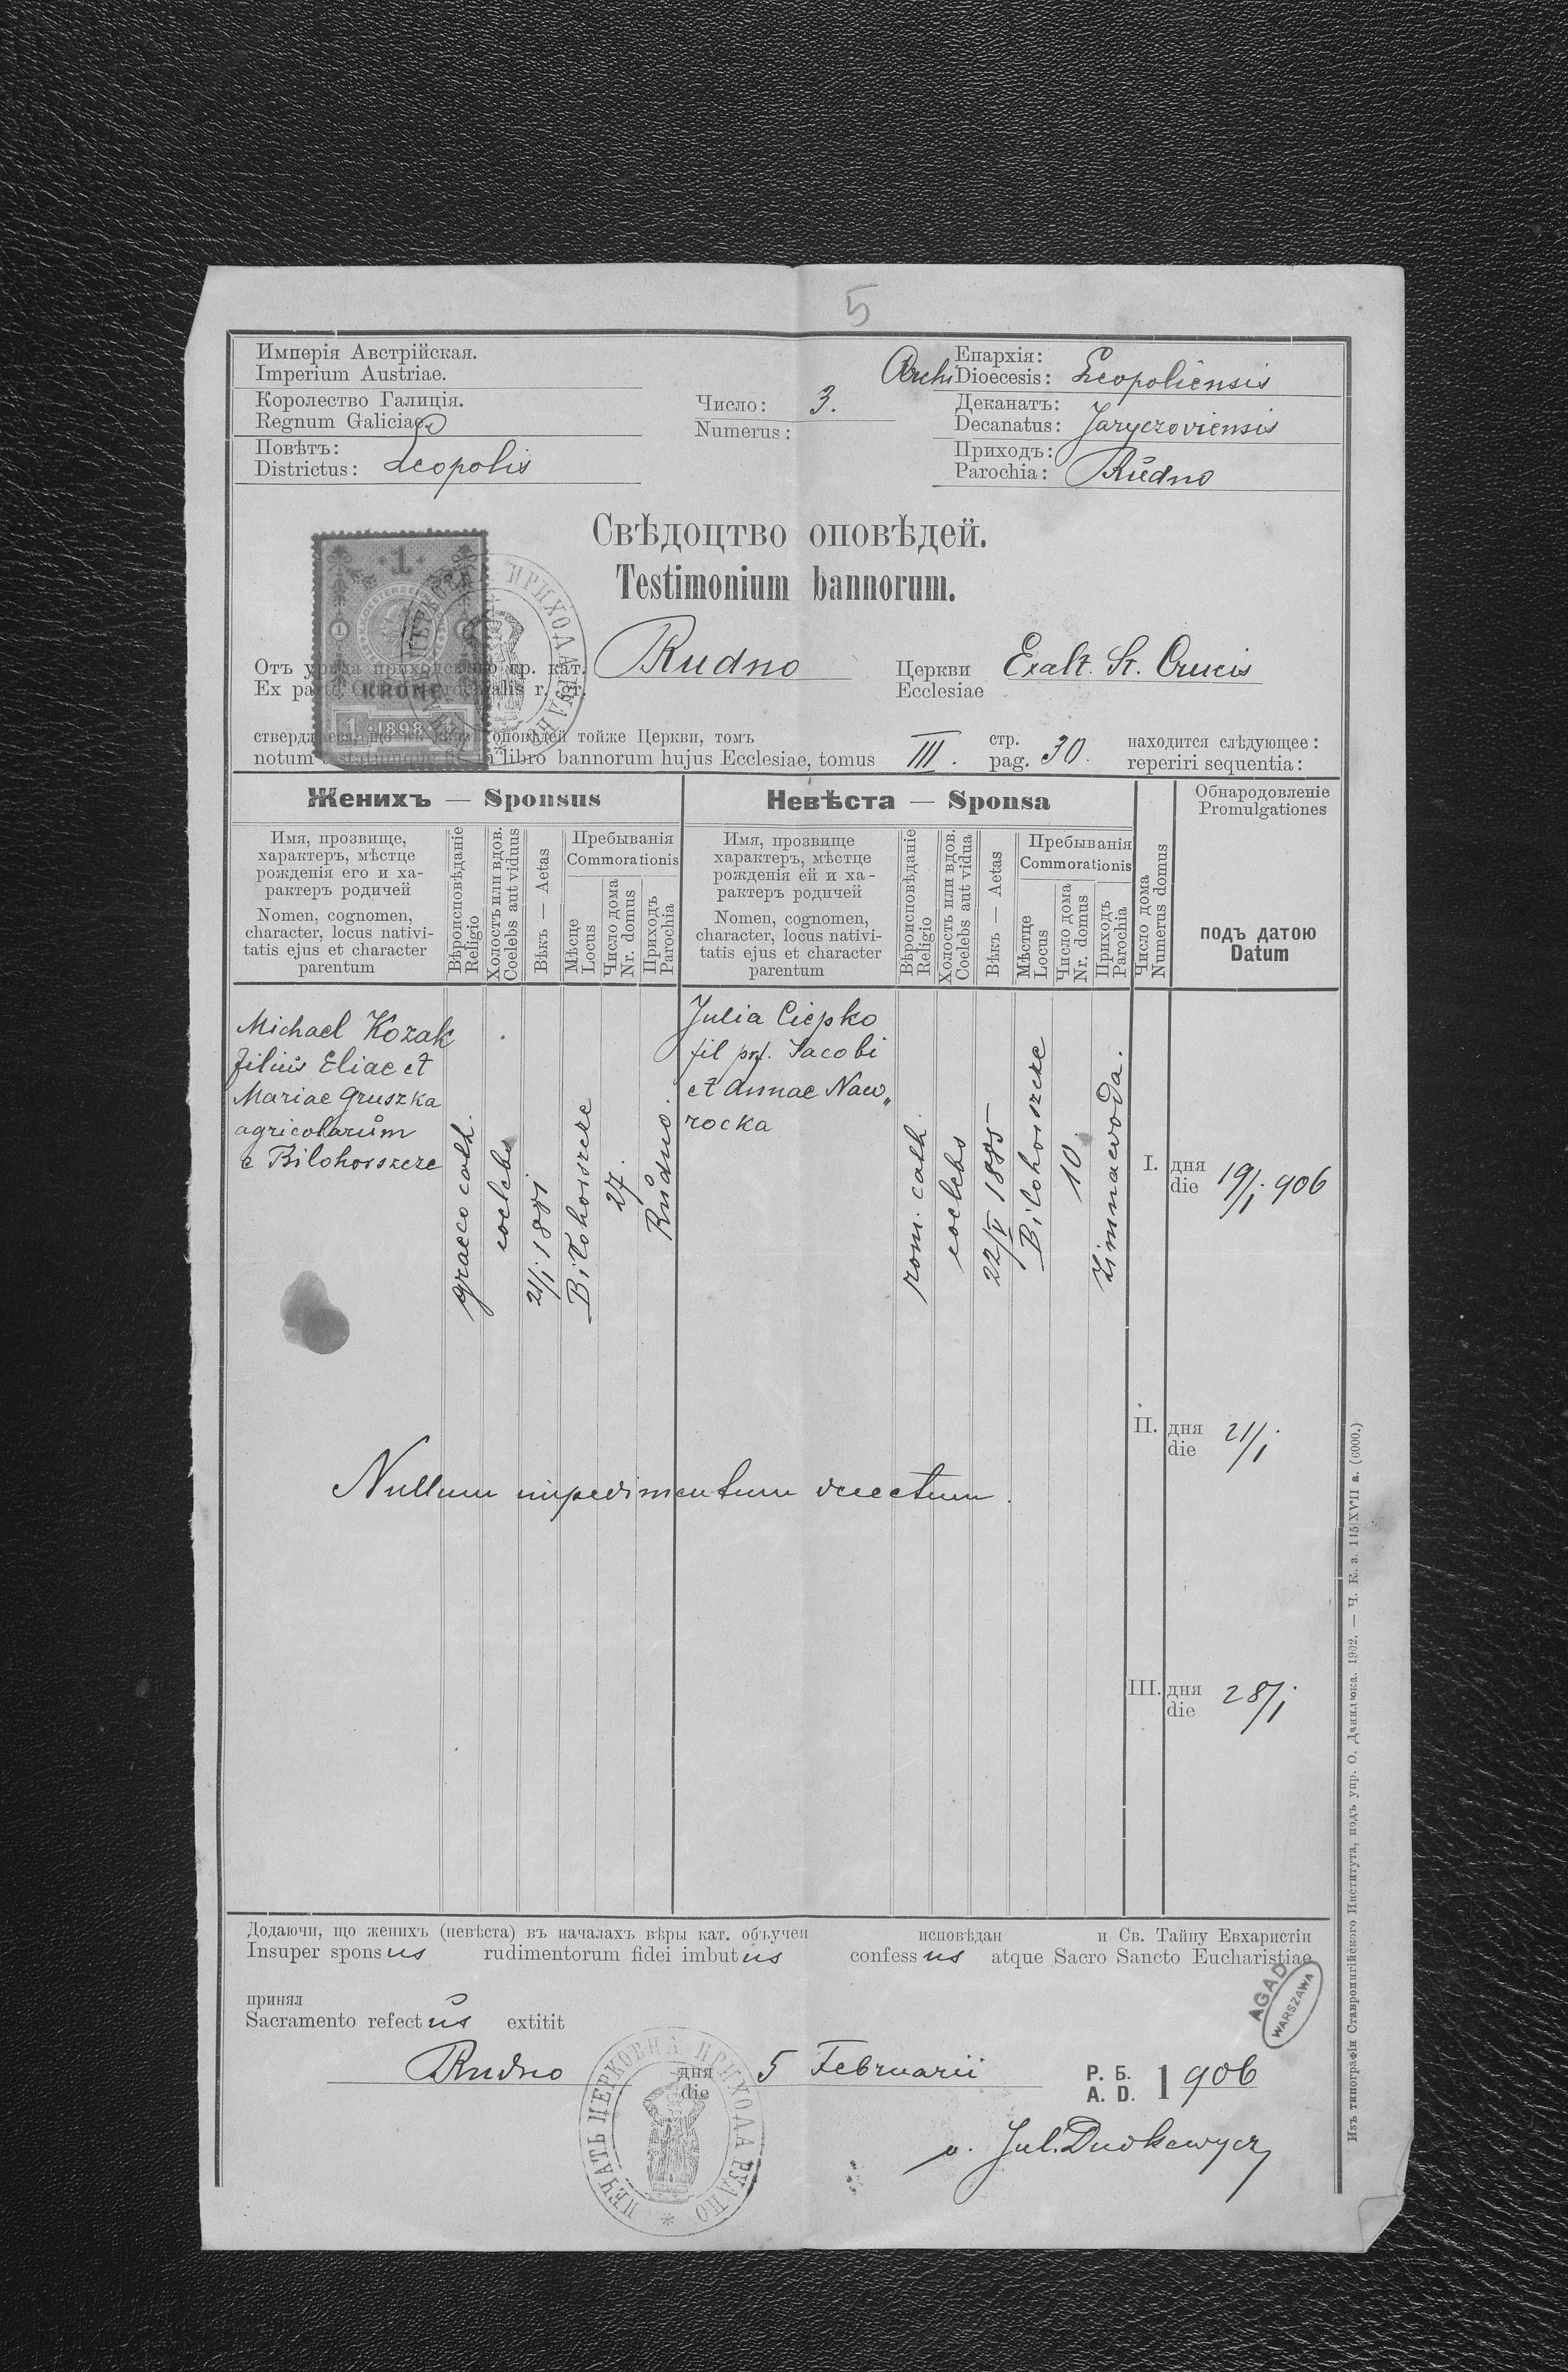 5
Имперія Австрійская.
Imperium Austriae.
Королество Галиція.
Regnum Galiciae.
Повѣтъ:
Districtus: Leopolis
Число: 3.
Numerus:
Епархія:
Archi Dioecesis: Leopoliensis
Деканатъ:
Decanatus: Jaryczoviensis
Приходъ:
Parochia: Rudno
Свѣдоцтво оповѣдей.
Testimonium bannorum.
1
KRONE
1 1898 1
Отъ уряда приходского гр. кат. Rudno Церкви Exalt. St. Crucis
Ex parte Officii parochialis r. gr. Ecclesiae
оповѣдей тойже Церкви, томъ III. стр. 30. находится слѣдующее:
notum libro bannorum hujus Ecclesiae, tomus pag. reperiri sequentia:
Женихъ — Sponsus
Невѣста — Sponsa
Обнародовленіе
Promulgationes
Имя, прозвище,
характеръ, мѣстце
рожденія его и ха-
рактеръ родичей
Nomen, cognomen,
character, locus nativi-
tatis ejus et character
parentum
Вѣроисповѣданіе
Religio
Холостъ или вдов.
Coelebs aut viduus
Вѣкъ — Aetas
Пребыванія
Commorationis
Мѣсце
Locus
Число дома
Nr. domus
Приходъ
Parochia
Имя, прозвище
характеръ, мѣстце
рожденія ей и ха-
рактеръ родичей
Nomen, cognomen,
character, locus nativi-
tatis ejus et character
parentum
Вѣроисповѣданіе
Religio
Холостъ или вдов.
Coelebs aut vidua
Вѣкъ — Aetas
Пребыванія
Commorationis
Мѣстце
Locus
Число дома
Nr. domus
Приходъ
Parochia
Число дома
Numerus domus
подъ датою
Datum
Michael Kozak
filius Eliae et
Mariae Gruszka
agricolarum
e Bilohorszcze
graeco cath.
coelebs
21/I 1881
Biłohorszcze
27.
Rudno.
Julia Ciepko
fil pof. Jacobi
et Annae Naw„
rocka
rom. cath.
coelebs
22/V 1885
Bilohorszcze
10
Zimnawoda.
I. дня
die 19/I 906
II. дня
die 21/I
Nullum impedimentum detectum.
III. дня
die 28/I
Додаючи, що женихъ (невѣста) въ началахъ вѣры кат. объучен исповѣдан и Св. Тайну Евхаристіи
Insuper spons us rudimentorum fidei imbut us confess us atque Sacro Sancto Eucharistiae
принял
Sacramento refect us extitit
AGAD
WARSZAWA
Rudno дня 5 Februarii Р. Б. 1906
die A. D.
ПЕЧАТЬ ЦЕРКОВНА ПРИХОДА РУДНО
Jul. Dudkewycz
Изъ типографіи Ставропигійского Института, подъ упр. О. Данилюка. 1902. — Ч. К. з. 115|XVII а. (6000.)